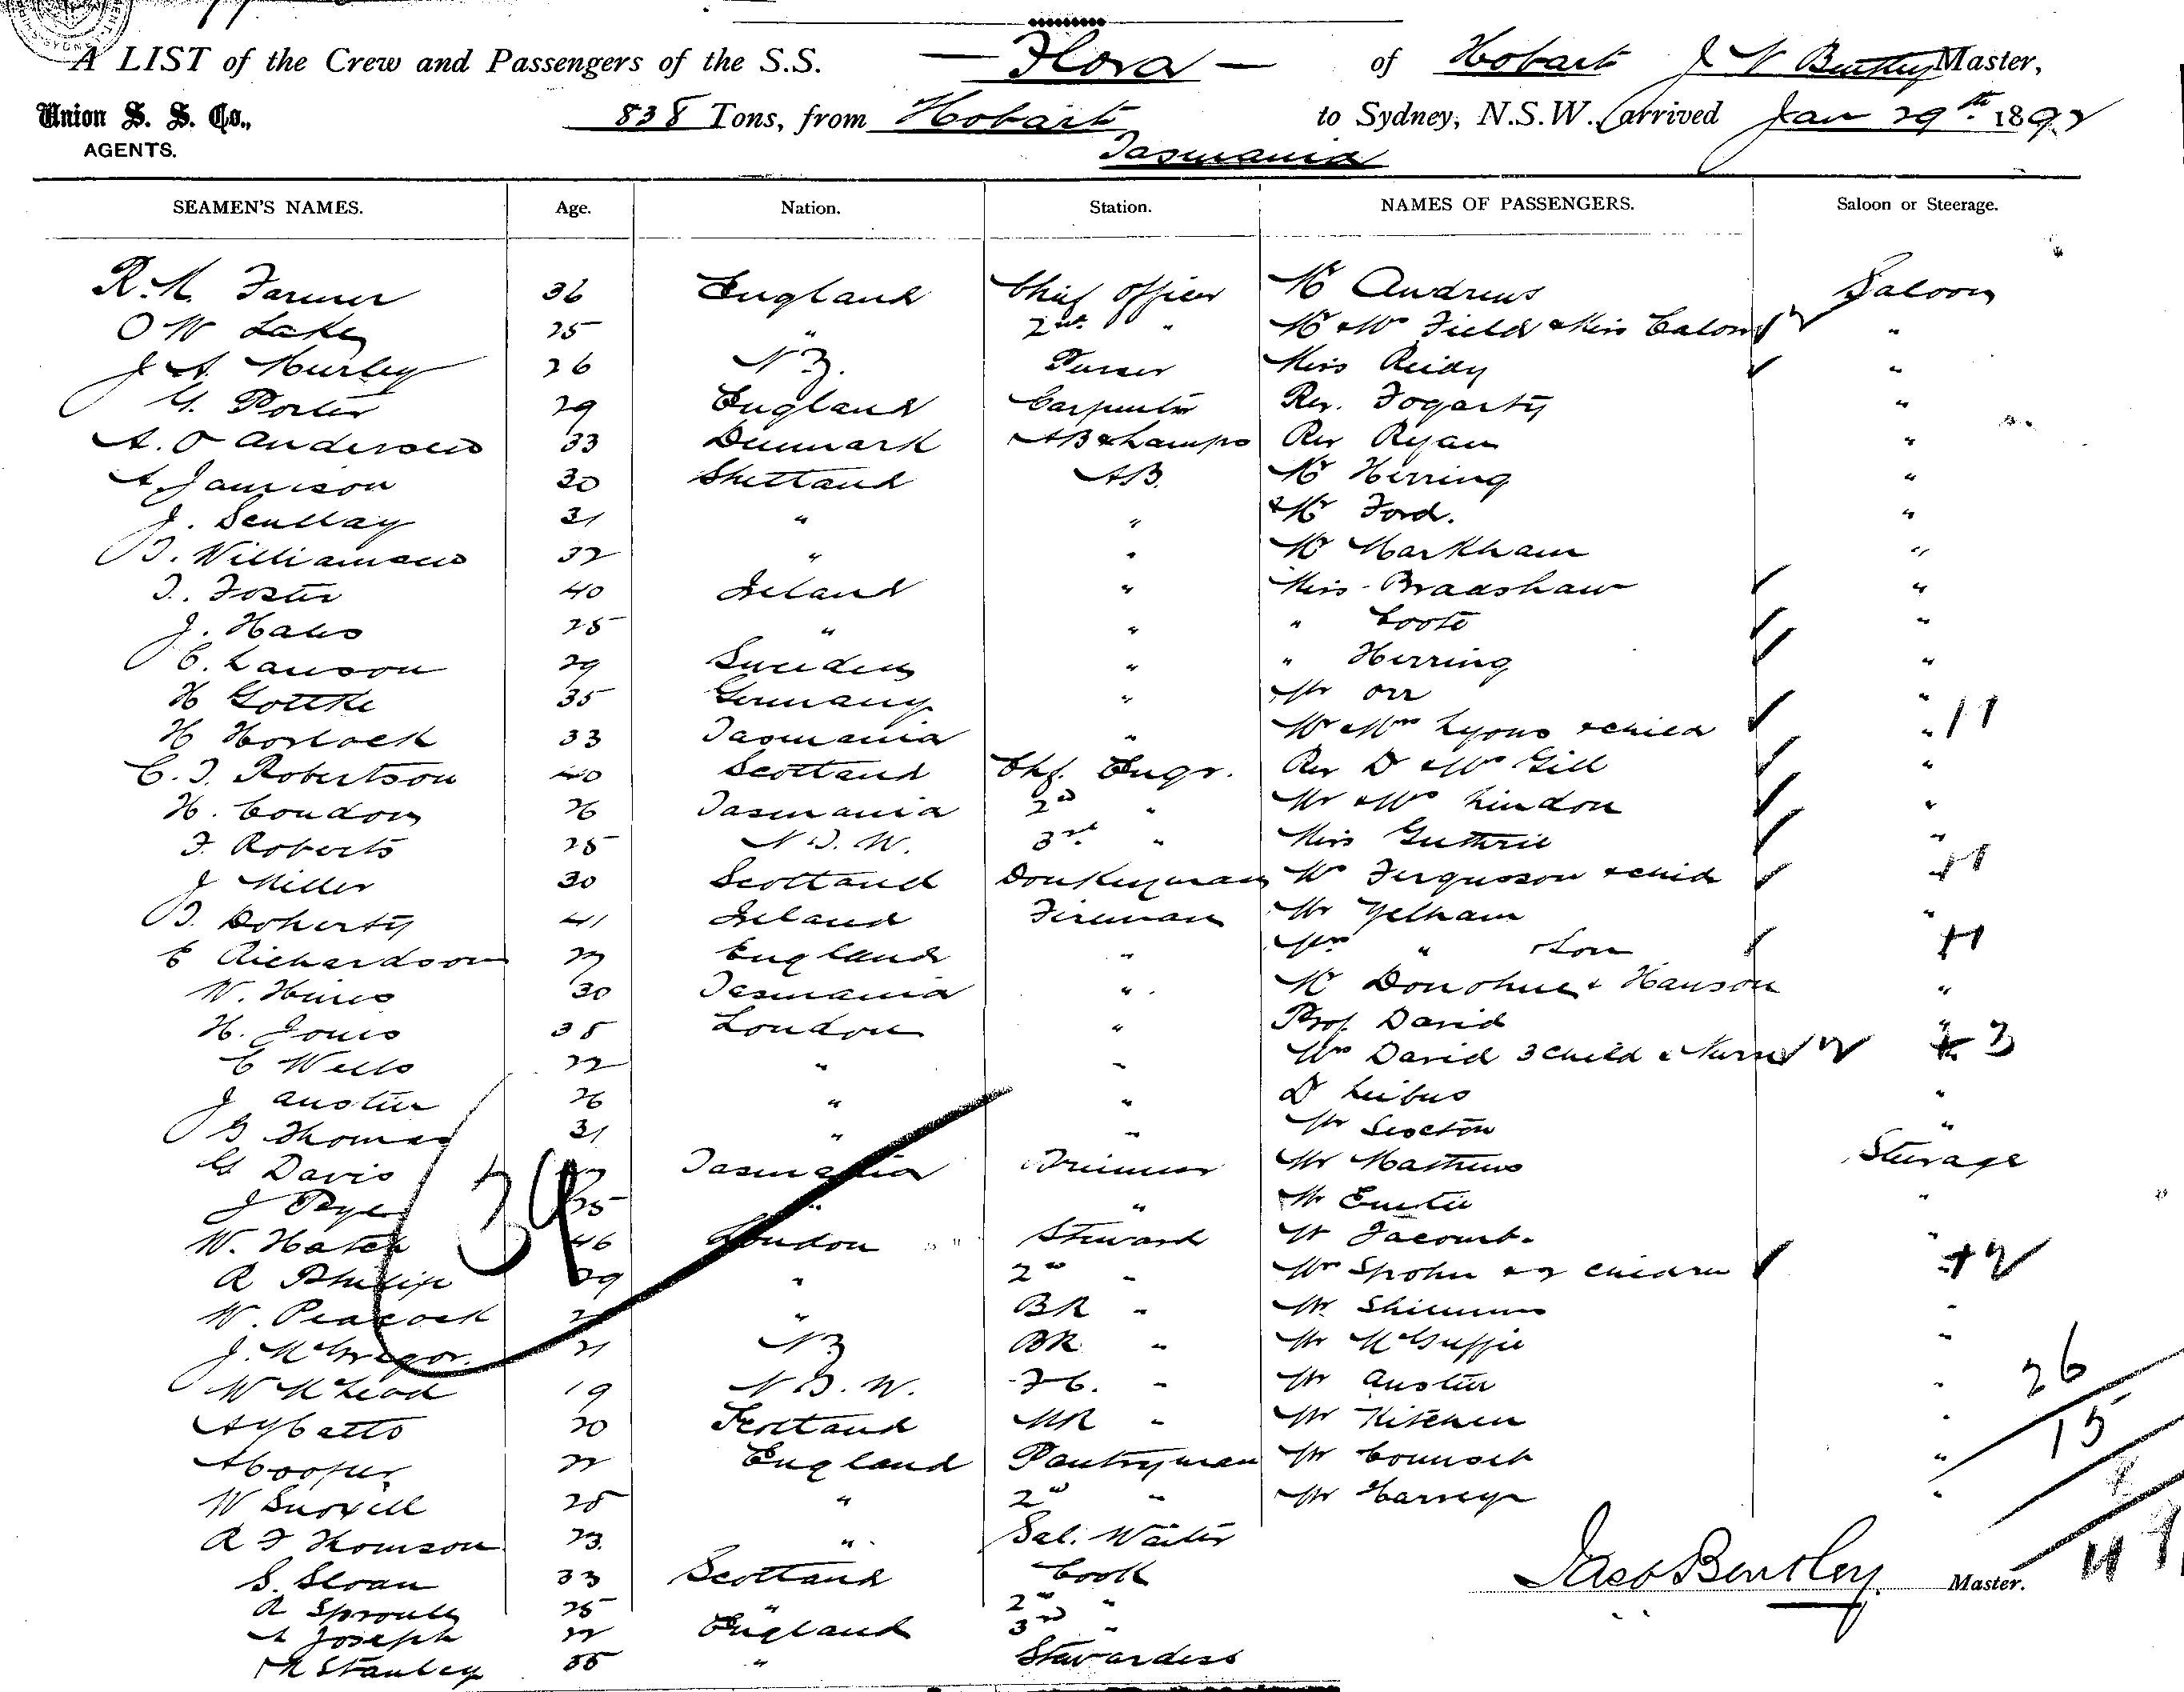 A LIST of the Crew and Passengers of the S.S. — Flora — of Hobart J Bentley Master,
Union S. S. Co., 838 Tons, from Hobart to Sydney, N.S.W., arrived Jan 29th 1892
AGENTS. Tasmania
SEAMEN'S NAMES. Age. Nation. Station. NAMES OF PASSENGERS. Saloon or Steerage.
R.M. Farmer 36 England Chief Officer Mr Andrews Saloon
O W Lakey 25 " 2nd " Mr & Mrs Field & Miss "
J A Hurley 26 N Z. Purser Miss Reidy "
G. Porter 29 England Carpenter Rev. Fogarty "
A. O Anderson 33 Denmark AB & Lamps Rev Ryan "
A. Jamison 30 Shetland AB. Mr Herring "
J. Scullay 31 " " & Mr Ford. "
T. Williamson 32 " " Mr Markham "
T. Foster 40 Ireland " Miss Bradshaw "
J. 25 " " " Coote "
C. Lauson 29 Sweden " " Herring "
H Gottke 35 Germany " Mr Orr "
H Horlock 33 Tasmania " Mr & Mrs Lyons & child " 11
C. T. Robertson 40 Scotland Chf. Engr. Rev D & Mrs Gill "
H. Condon 26 Tasmania 2nd " Mr & Mrs Lindon "
F. Roberts 25 N.S.W. 3rd " Miss Guthrie "
J Miller 30 Scotland Donkeyman Mrs Fergusson & child +1
T. Doherty 41 Ireland Fireman Mr Yelham "
E Richardson 27 England " Mrs " & Son +1
W. Hines 30 Tasmania " Mr Donohue & Hanson "
H. Jones 38 London " Prof. David "
C Wells 22 " " Mrs David 3 child & Nurse + 3
J Austin 26 " " D "
G Thomas 31 " " Mr Sexton "
G Davis Tasmania Trimmer Mr Mathews Steerage
J Pye 25 " " Mr "
W. Hatch 46 London " Steward Mr Jacomb. "
R Philip 29 " 2nd " Mrs Spohn & 2 children +2
W. Peacock " BR " Mr "
J. McGregor. 21 N Z BR " Mr McGuffie "
W McLeod 19 N.S.W. F C. " Mr Austin "
A Y Catto 20 Scotland MR " Mr Kitchen "
A Cooper 22 England Pantryman Mr "
W Snoxell 25 " 2nd " Mr Harvey "
R F Thomson 23. " Sal. Waiter
S. Sloan 33 Scotland Cook
R Sproule 25 " 2nd "
A Joseph 22 England 3rd "
M Stanley 55 " Stewardess
39
26
15
Jacob Bentley Master.